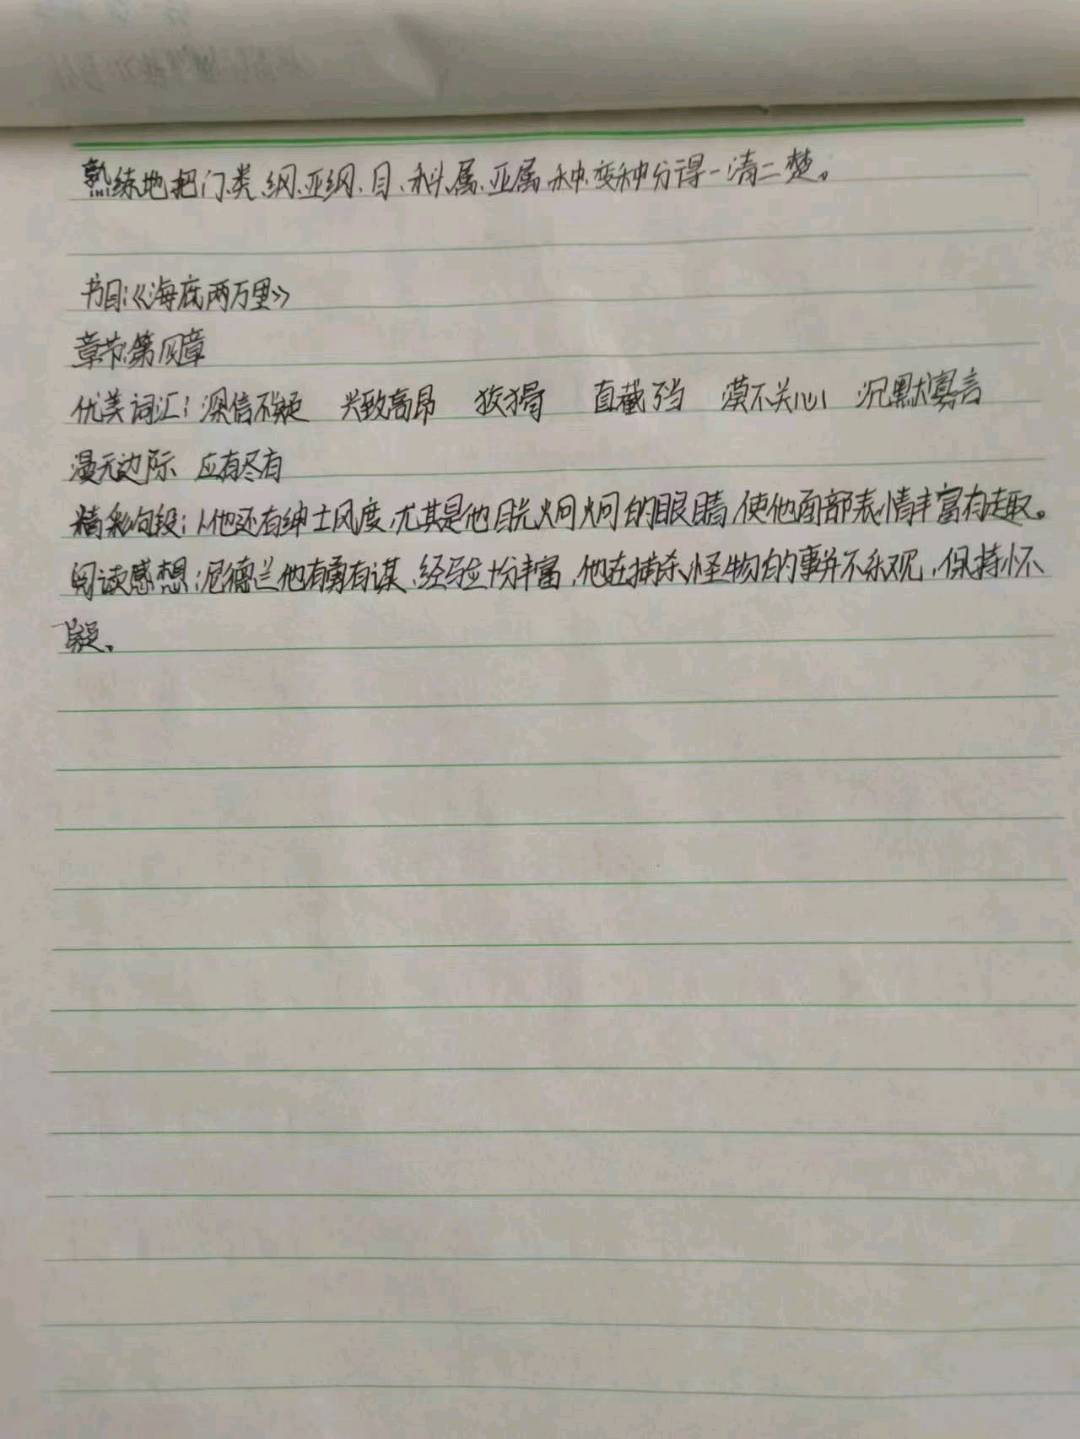 熟练地把门、类、纲、亚纲、目、科、属、亚属、种、变种分得一清二楚。
书目:《海底两万里》
章节:第四章
优美词汇:深信不疑 兴致高昂 狡猾 直截了当 漠不关心 沉默寡言
漫无边际 应有尽有
精彩句段:1.他还有绅士风度,尤其是他目光炯炯的眼睛,使他面部表情丰富有趣。
阅读感想:尼德兰他有勇有谋,经验十分丰富,他在捕杀怪物的事并不乐观,保持怀
疑。